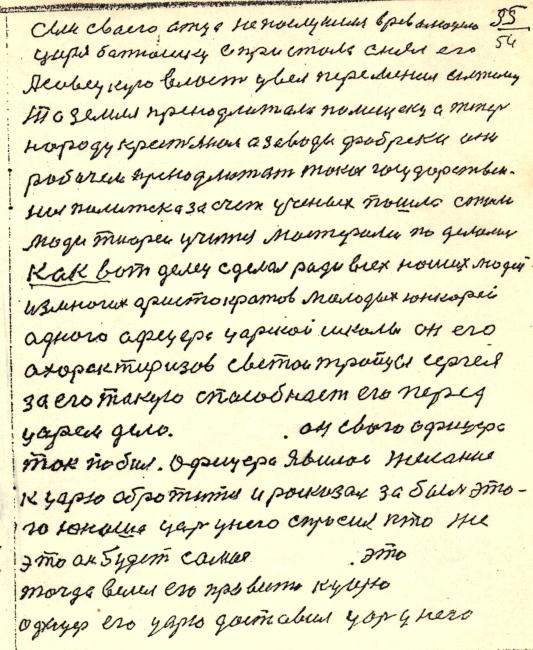 сын своего отца не послушил времонно 55
царя батюшку с пристола снял его 54
Ясовецкую власть увел переменил систему
То земля пренодлижала помещеку а тепер
народу крестьяном а заводы фабреки они
рабочем пренодлежат такая государствен-
ная политека за счет ученых пошла стали
люди тиореи учится мастерами по делами
как вот делец сделал ради всех нашех людей
из многих аристократов молодых юнкорей
одного афецера царской школы он его
охорактиризов светом тройцы сергея
за его такую способнаст его перед
царем дело. . он своего офицера
так побил. Офицера явилос желание
к царю обротится и росказал за был это-
го юношу цар у него спросил кто же
это он будет самый . это
тогда велел его превести к царю
офицер его царю доставил цар у него